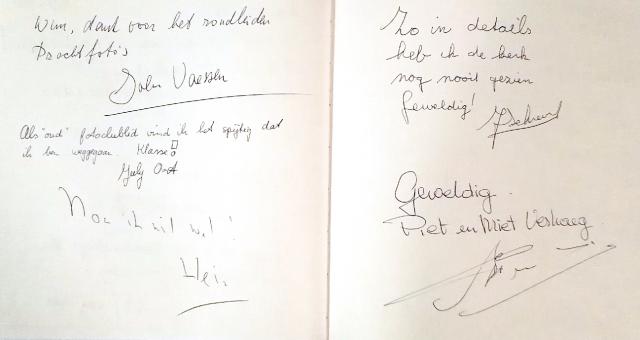 Wim, dank voor het rondleiden
Prachtfoto's
Vaessen
Als "oud" fotoclublid vind ik het spijtig dat
ik ben weggegaan. Klasse!
Nou ik wil wel!
Hein
Zo in details
heb ik de kerk
nog nooit gezien
Geweldig!
Geweldig.
Piet en Miet